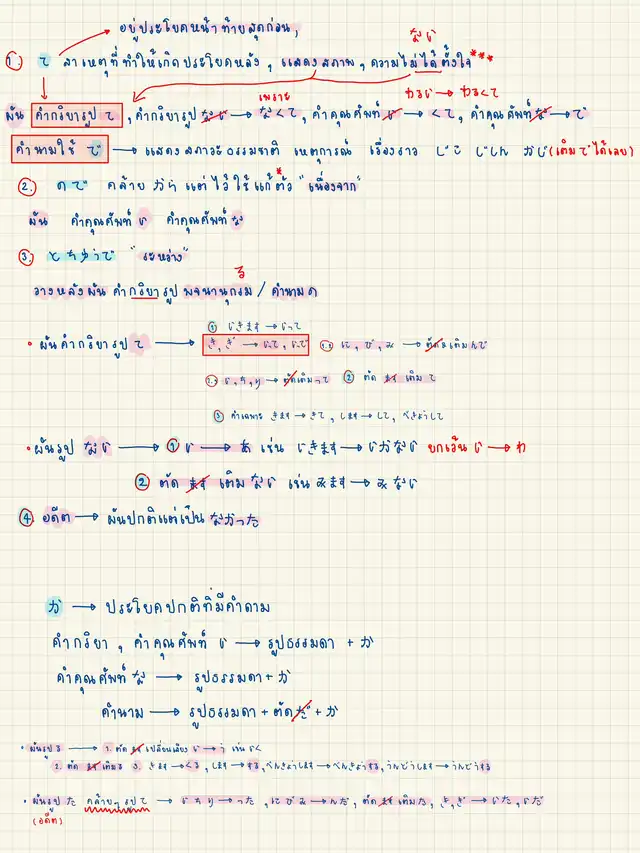 อยู่ประโยคหน้าท้ายสุดก่อน,
ない
1. て สาเหตุที่ทำให้เกิดประโยคหลัง, แสดงสภาพ, ความไม่ได้ตั้งใจ***
เพราะ わるい → わるくて
ผัน คำกริยารูป て, คำกริยารูป ない → なくて, คำคุณศัพท์ い → くて, คำคุณศัพท์ な → で
คำนามใช้ で → แสดงสภาวะธรรมชาติ เหตุการณ์ เรื่องราว じこ じしん かじ (เติม で ได้เลย)
2. ので คล้าย から แต่ไว้ใช้แก้ตัว* "เนื่องจาก"
ผัน คำคุณศัพท์ い คำคุณศัพท์ な
3. とちゅうで "ระหว่าง"
る
วางหลังผัน คำกริยารูป พจนานุกรม / คำนาม の
① いきます → いって
• ผันคำกริยารูป て → き, ぎ → いて, いで 1.1 に, び, み → ตัด เติม んで
1.2 い, ち, り → ตัดเติม って ② ตัด ます เติม て
③ คำเฉพาะ きます → きて, します → して, べきょうして
• ผันรูป ない → ① い → あ เช่น いきます → いかない ยกเว้น い → わ
② ตัด ます เติม ない เช่น みます → みない
④ อดีต → ผันปกติแต่เป็น なかった
か → ประโยคปกติที่มีคำถาม
คำกริยา, คำคุณศัพท์ い → รูปธรรมดา + か
คำคุณศัพท์ な → รูปธรรมดา + か
คำนาม → รูปธรรมดา + ตัด だ + か
• ผันรูป る → 1. ตัด ます เปลี่ยนเสียง い → う เช่น いく
2. ตัด ます เติม る 3. きます → くる, します → する, べんきょうします → べんきょうする, うんどうします → うんどうする
• ผันรูป た คล้ายๆ รูป て → いちり → った, にびみ → んだ, ตัด ます เติม た, き, ぎ → いた, いだ
(อดีต)